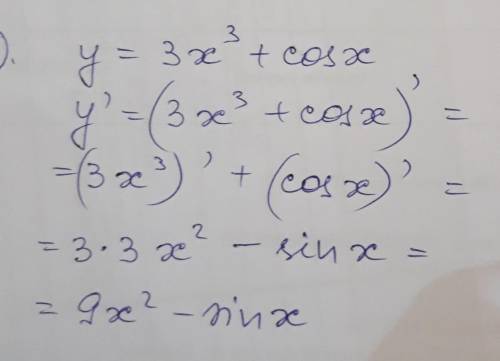 ).
y = 3x³ + cosx
y' = (3x³ + cosx)' =
= (3x³)' + (cosx)' =
= 3·3x² - sinx =
= 9x² - sinx